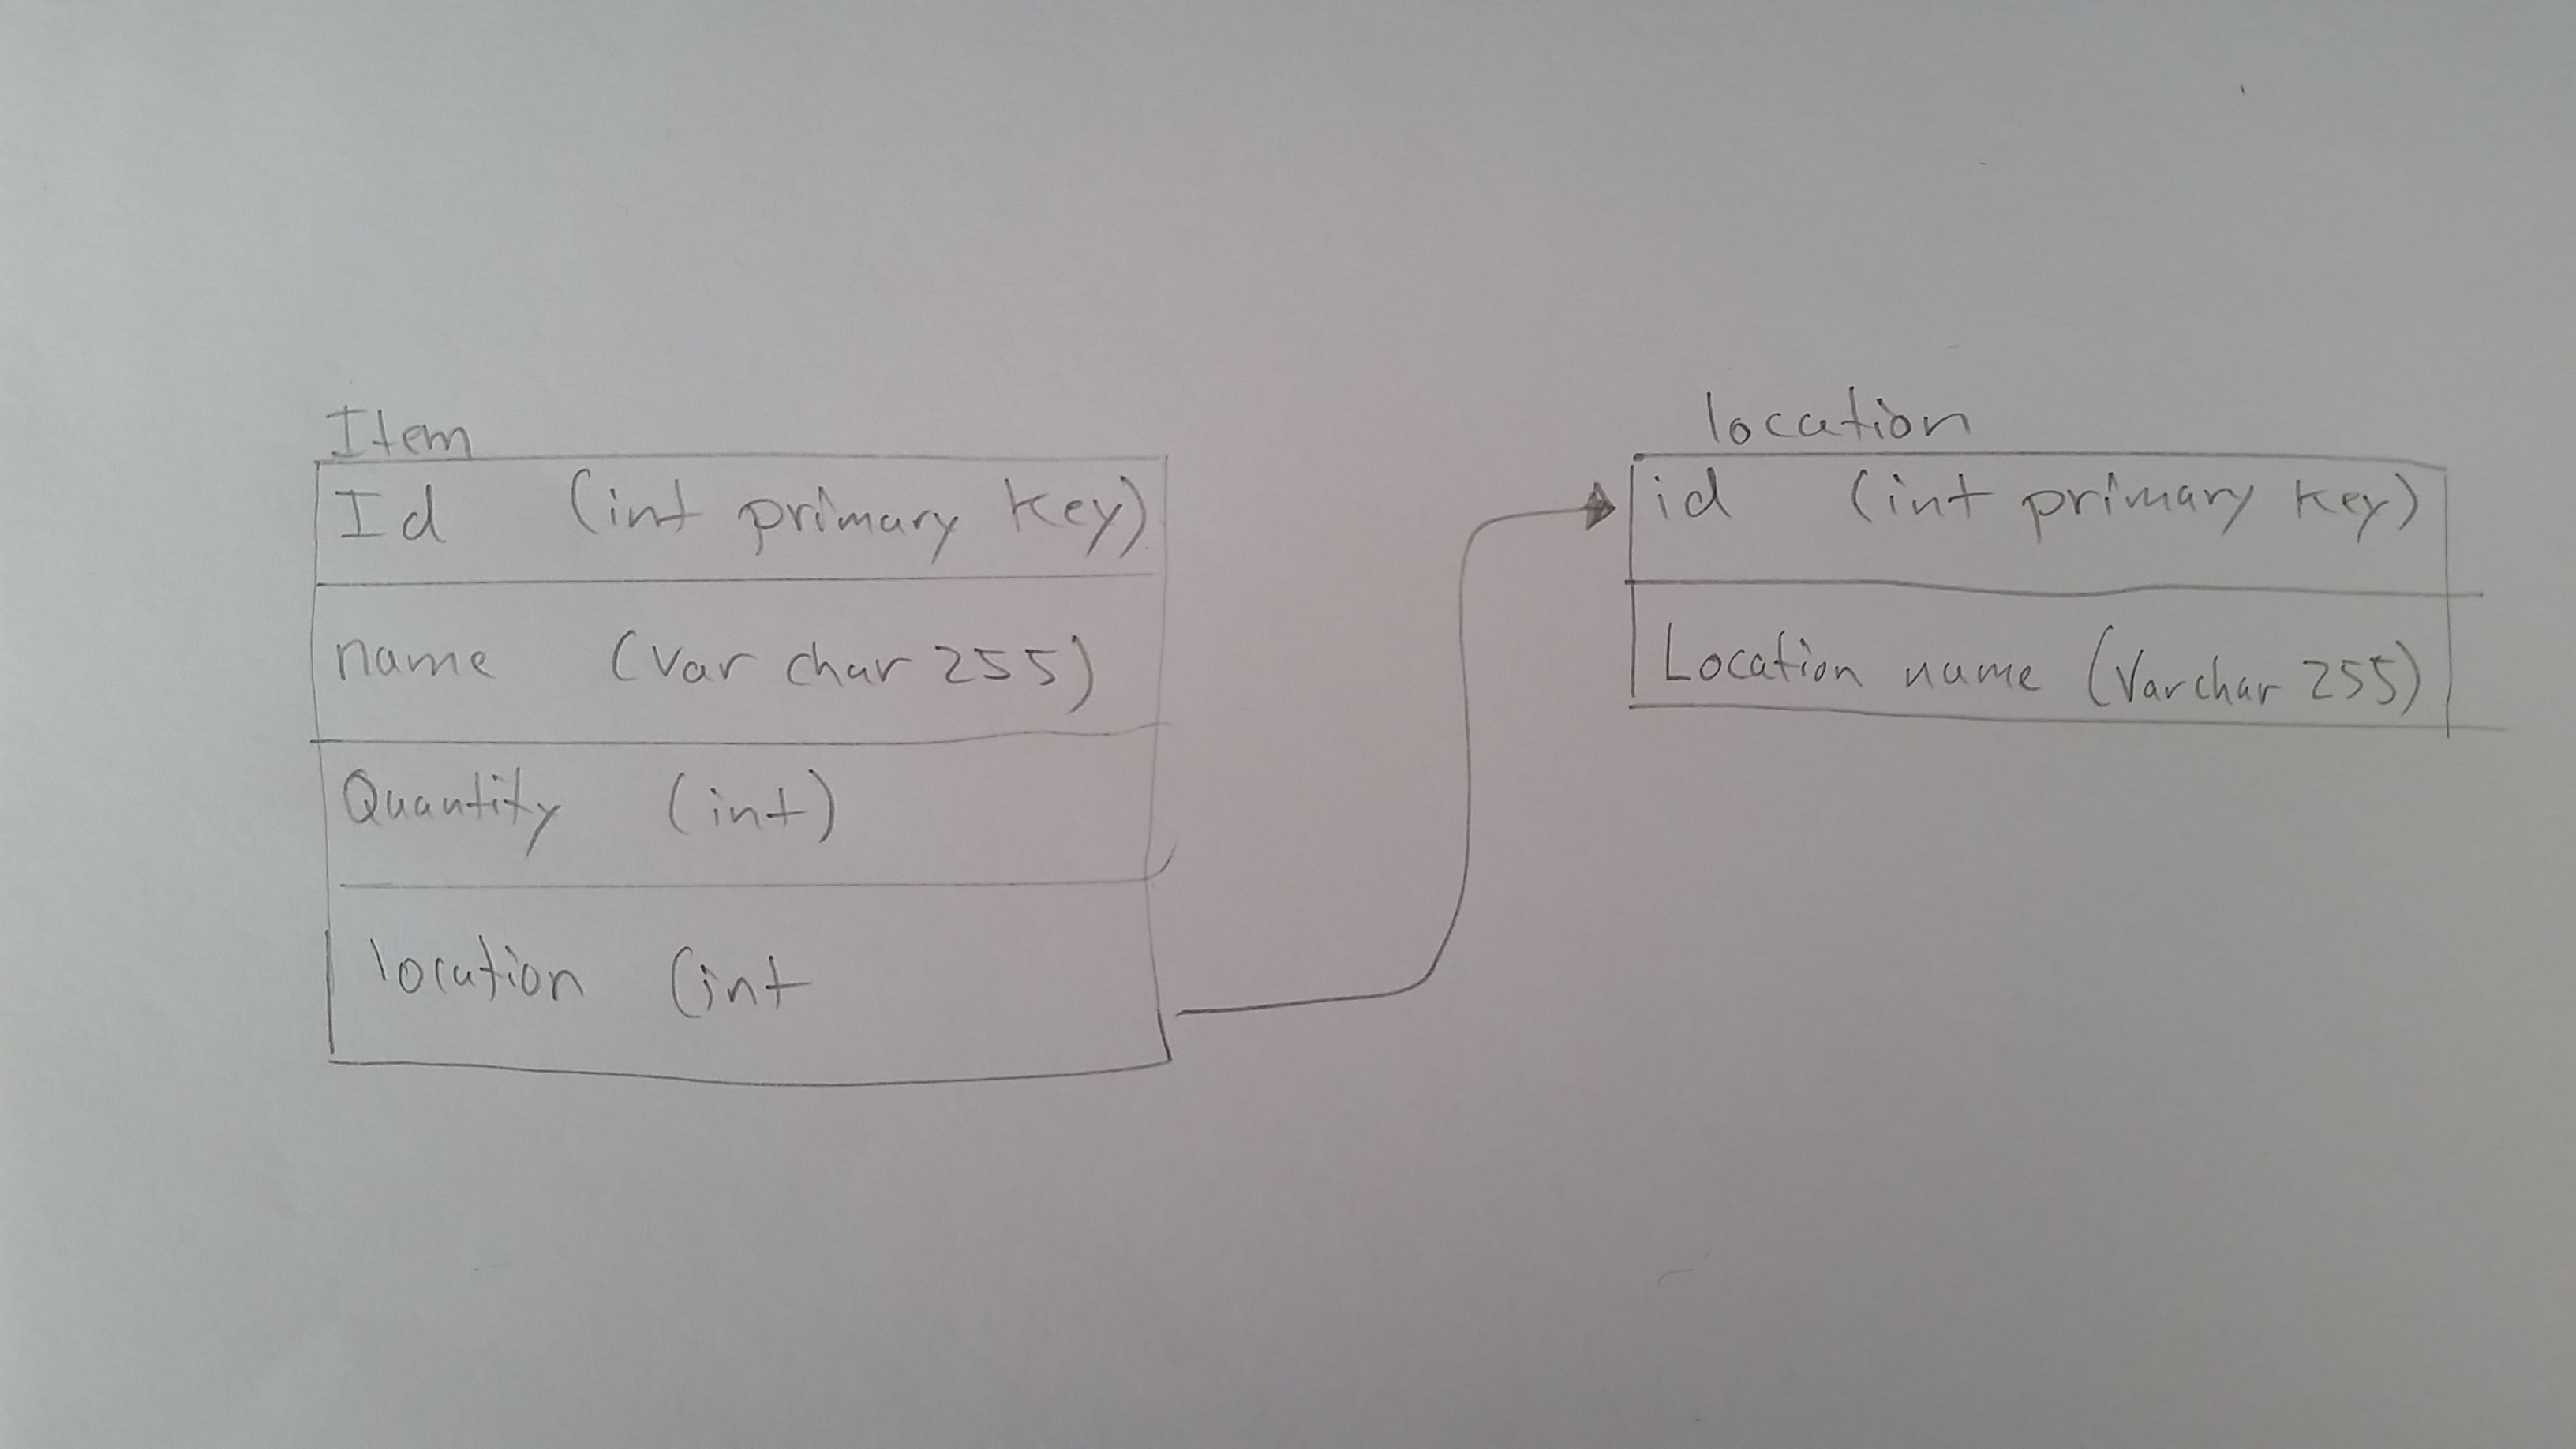 Item
Id (int primary key)
name (varchar 255)
Quantity (int)
location (int
location
id (int primary key)
Location name (Varchar 255)